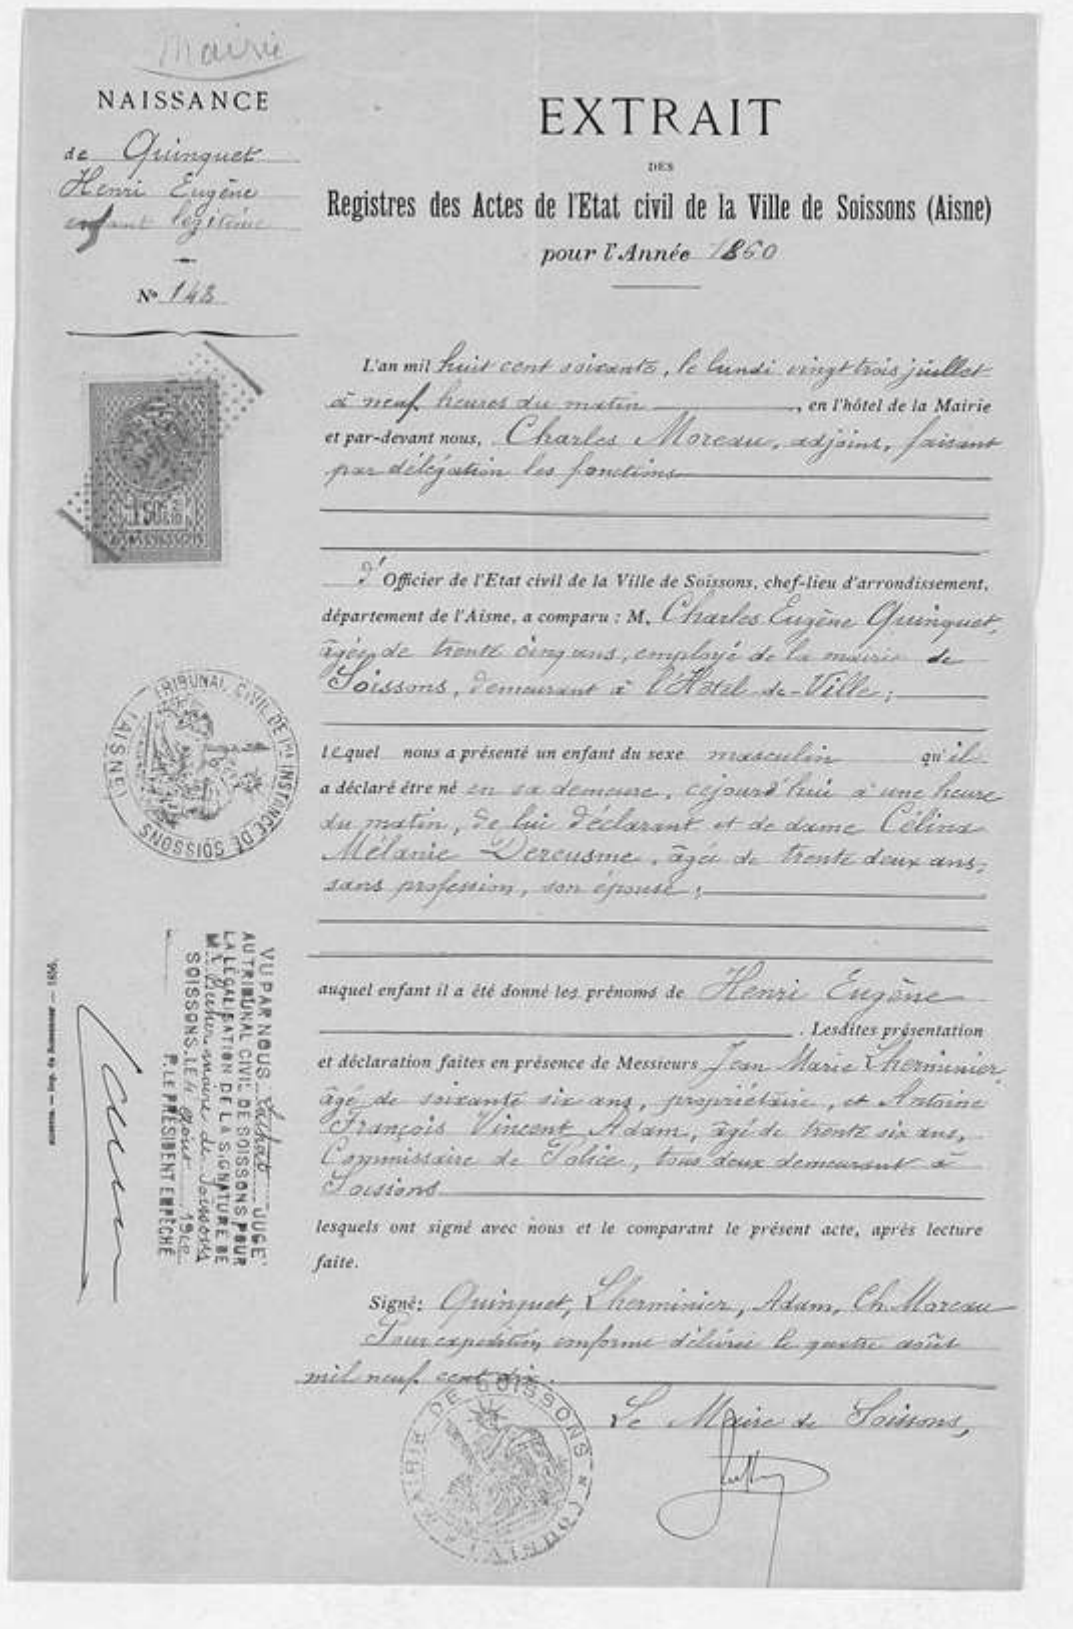 Mairie
NAISSANCE
de Quinquet
Henri Eugène
enfant légitime
N° 148
EXTRAIT
DES
Registres des Actes de l'Etat civil de la Ville de Soissons (Aisne)
pour l'Année 1860
L'an mil huit cent soixante, le lundi vingt trois juillet
à neuf heures du matin, en l'hôtel de la Mairie
et par-devant nous, Charles Moreau, adjoint, faisant
par délégation les fonctions
d'Officier de l'Etat civil de la Ville de Soissons, chef-lieu d'arrondissement,
département de l'Aisne, a comparu : M. Charles Eugène Quinquet,
âgé de trente cinq ans, employé de la mairie de
Soissons, demeurant à l'Hôtel-de-Ville;
lequel nous a présenté un enfant du sexe masculin qu'il
a déclaré être né en sa demeure, cejourd'hui à une heure
du matin, de lui déclarant et de dame Célina
Mélanie Dereusme, âgée de trente deux ans,
sans profession, son épouse;
auquel enfant il a été donné les prénoms de Henri Eugène
. Lesdites présentation
et déclaration faites en présence de Messieurs Jean Marie Lherminier,
âgé de soixante six ans, propriétaire, et Antoine
François Vincent Adam, âgé de trente six ans,
Commissaire de Police, tous deux demeurant à
Soissons
lesquels ont signé avec nous et le comparant le présent acte, après lecture
faite.
Signé: Quinquet, Lherminier, Adam, Ch. Moreau
Pour expédition conforme délivrée le quatre août
mil neuf cent dix.
Le Maire de Soissons,
MAIRIE DE SOISSONS (AISNE)
1 50
TRIBUNAL CIVIL DE 1re INSTANCE DE SOISSONS (AISNE)
VU PAR NOUS JUGE
AU TRIBUNAL CIVIL DE SOISSONS POUR
LA LÉGALISATION DE LA SIGNATURE DE
M. maire de Soissons
SOISSONS, LE 4 août 1910
P. LE PRÉSIDENT EMPÊCHÉ